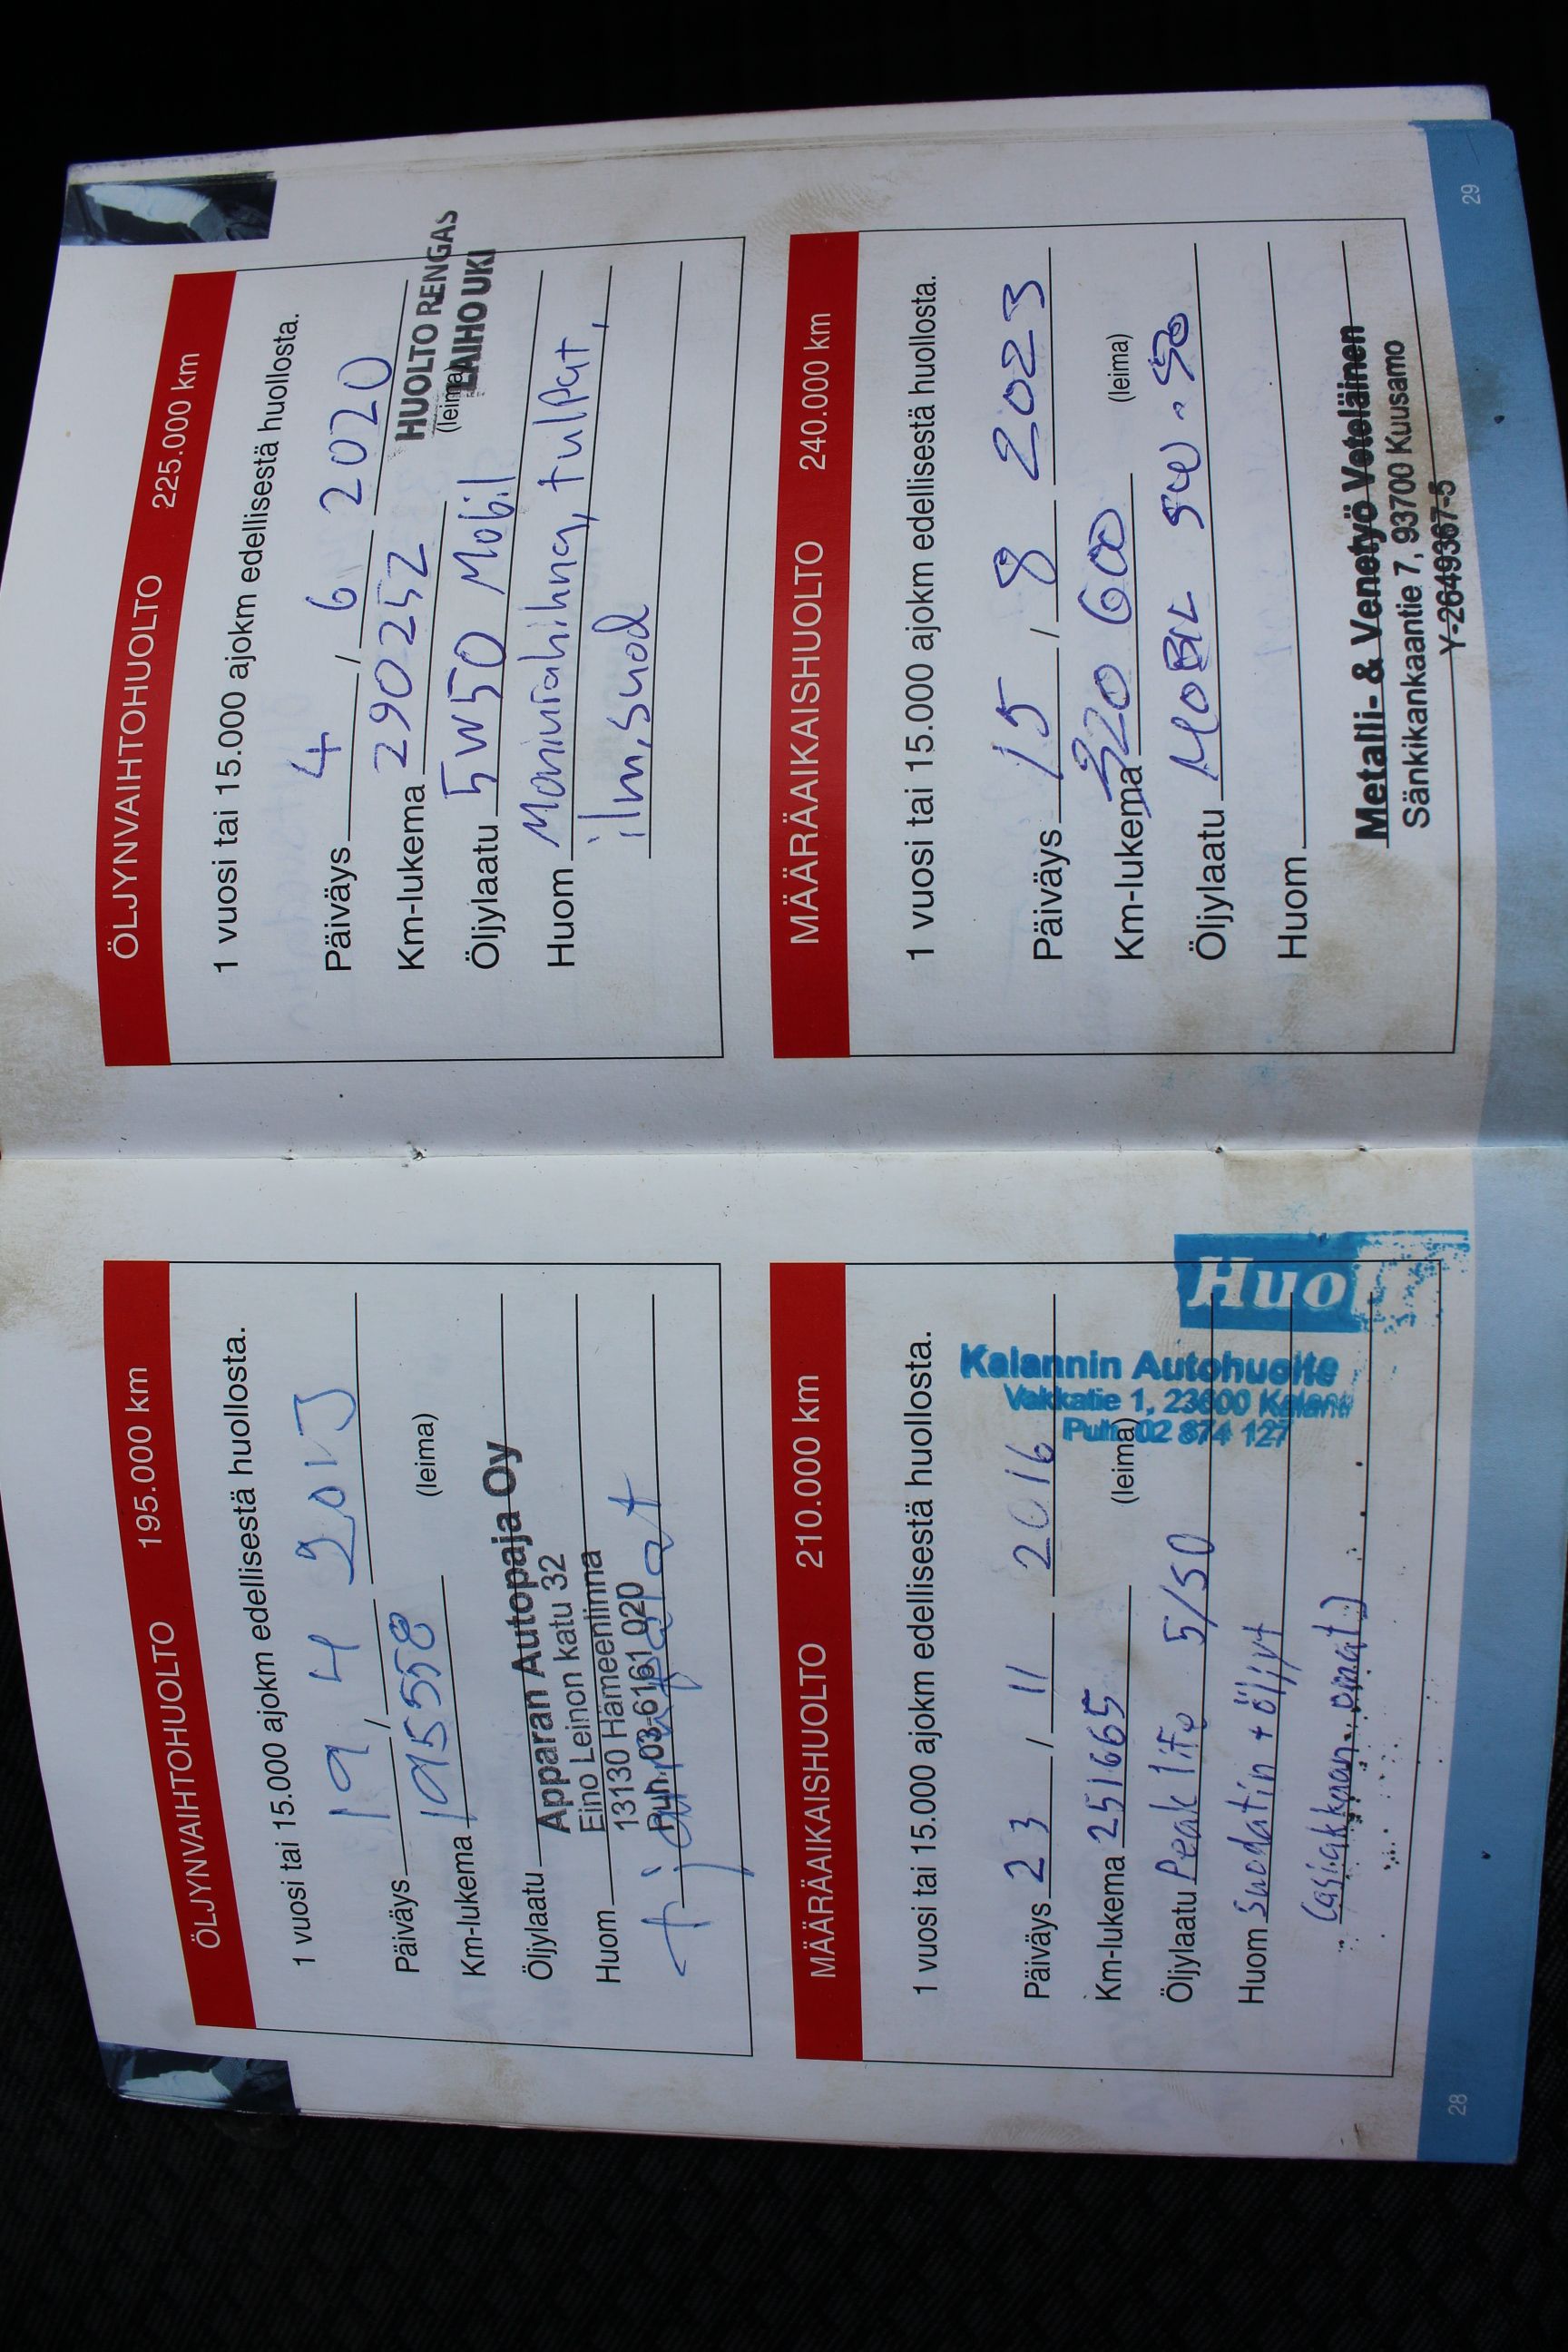 ÖLJYNVAIHTOHUOLTO 195.000 km
1 vuosi tai 15.000 ajokm edellisestä huollosta.
Päiväys 19 / 4 2013
Km-lukema 195558
(leima)
Öljylaatu
Apparan Autopaja Oy
Eino Leinon katu 32
Huom
13130 Hämeenlinna
Puh. 03-6161 020
+ jarrupalat
MÄÄRÄAIKAISHUOLTO 210.000 km
1 vuosi tai 15.000 ajokm edellisestä huollosta.
Päiväys 23 / 11 2016
Kalannin Autohuolto
Vakkatie 1, 23600 Kalanti
Puh. 02 874 127
Km-lukema 251665
(leima)
Öljylaatu Peak life 5/50
Huo
Huom Suodatin + öljyt
(asiakkaan omat)
28
ÖLJYNVAIHTOHUOLTO 225.000 km
1 vuosi tai 15.000 ajokm edellisestä huollosta.
Päiväys 4 / 6 2020
HUOLTO RENGAS
LAIHO UKI
Km-lukema 290252
(leima)
Öljylaatu 5W50 Mobil
Huom Moniurahihna, tulpat,
ilm.suod
MÄÄRÄAIKAISHUOLTO 240.000 km
1 vuosi tai 15.000 ajokm edellisestä huollosta.
Päiväys 15 / 8 2023
Km-lukema 320 600
(leima)
Öljylaatu MOBIL 5W-50
Huom
Metalli- & Venetyö Veteläinen
Sänkikankaantie 7, 93700 Kuusamo
Y-2649367-5
29